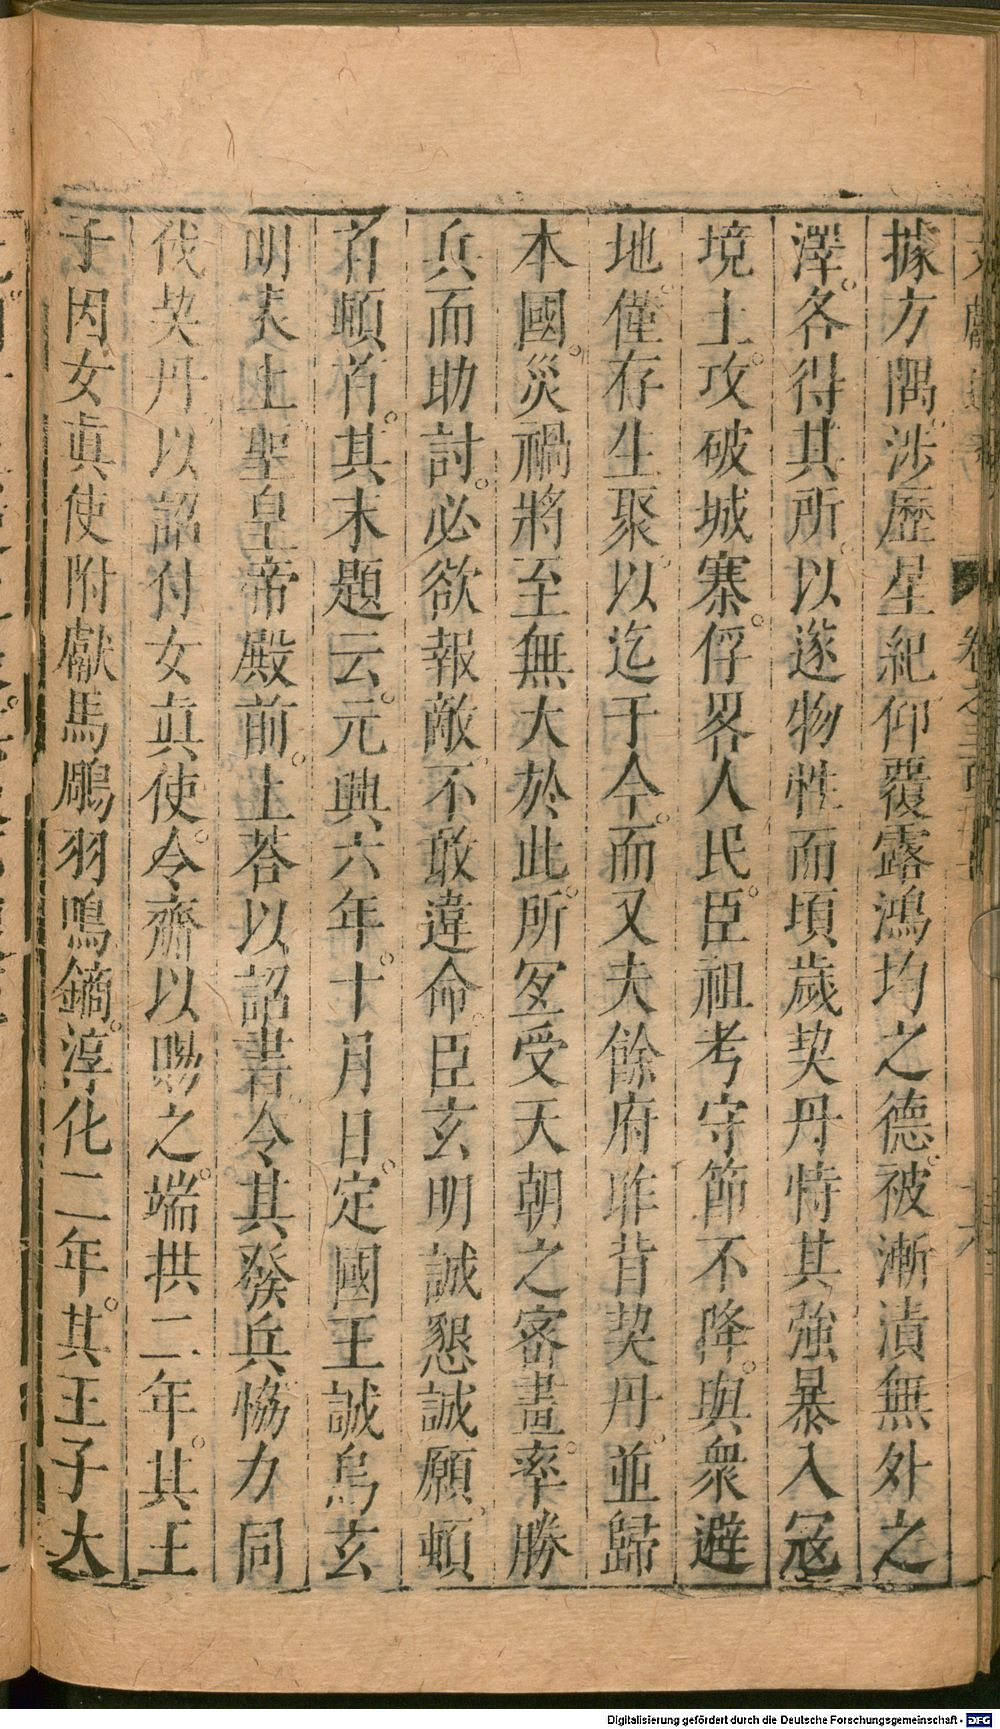 據方隅。涉歷星紀仰覆露鴻均之德。被漸漬無外之
澤。各得其所。以遂物性而頃歲契丹恃其強暴入寇
境土。攻破城寨。俘畧人民。臣祖考守節不降。與衆避
地。僅存生聚。以迄于今。而又夫餘府昨背契丹。並歸
本國。災禍將至無大於此。所宜受天朝之密畫。率勝
兵而助討。必欲報敵。不敢違命。臣玄明誠懇誠願。頓
首頓首。其末題云。元興六年。十月日。定國王誠烏玄
明表上聖皇帝殿前。上荅以詔書。令其發兵恊力同
伐契丹。以詔付女真使。令齎以賜之。端拱二年。其王
子因女真使附獻馬鵰羽鳴鏑。淳化二年。其王子大
卷之三百
Digitalisierung gefördert durch die Deutsche Forschungsgemeinschaft - DFG